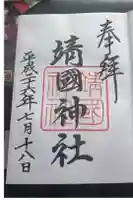 奉拝
靖國神社
平成二十六年七月十八日